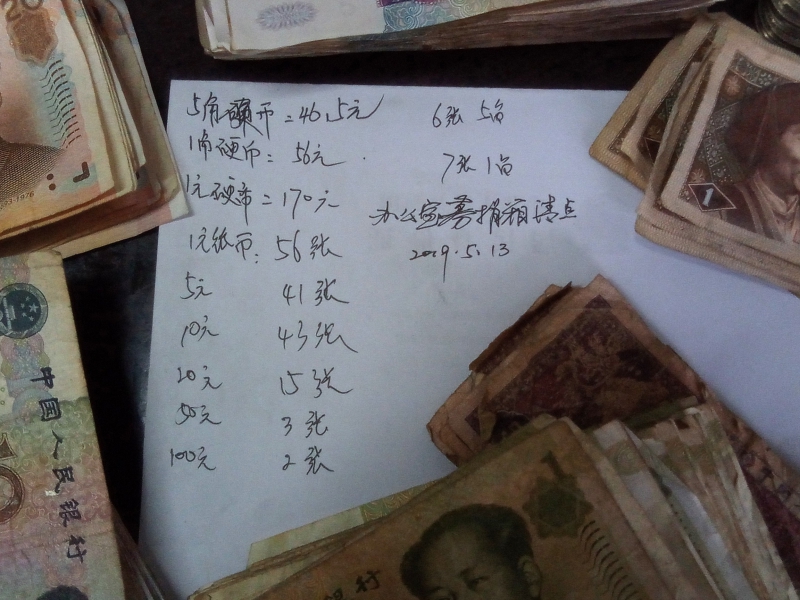 5角硬币=46.5元
1角硬币:56元
1元硬币=170元
1元纸币:56张
5元 41张
10元 43张
20元 15张
50元 3张
100元 2张
6张 5角
7张 1角
办公室募捐箱清点
2019.5.13
中国人民银行
1
1
20
10
银行